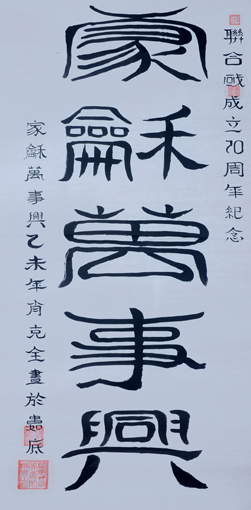 聯合國成立70周年紀念
家龢萬事興
家龢萬事興乙未年肖克全書於蠡底